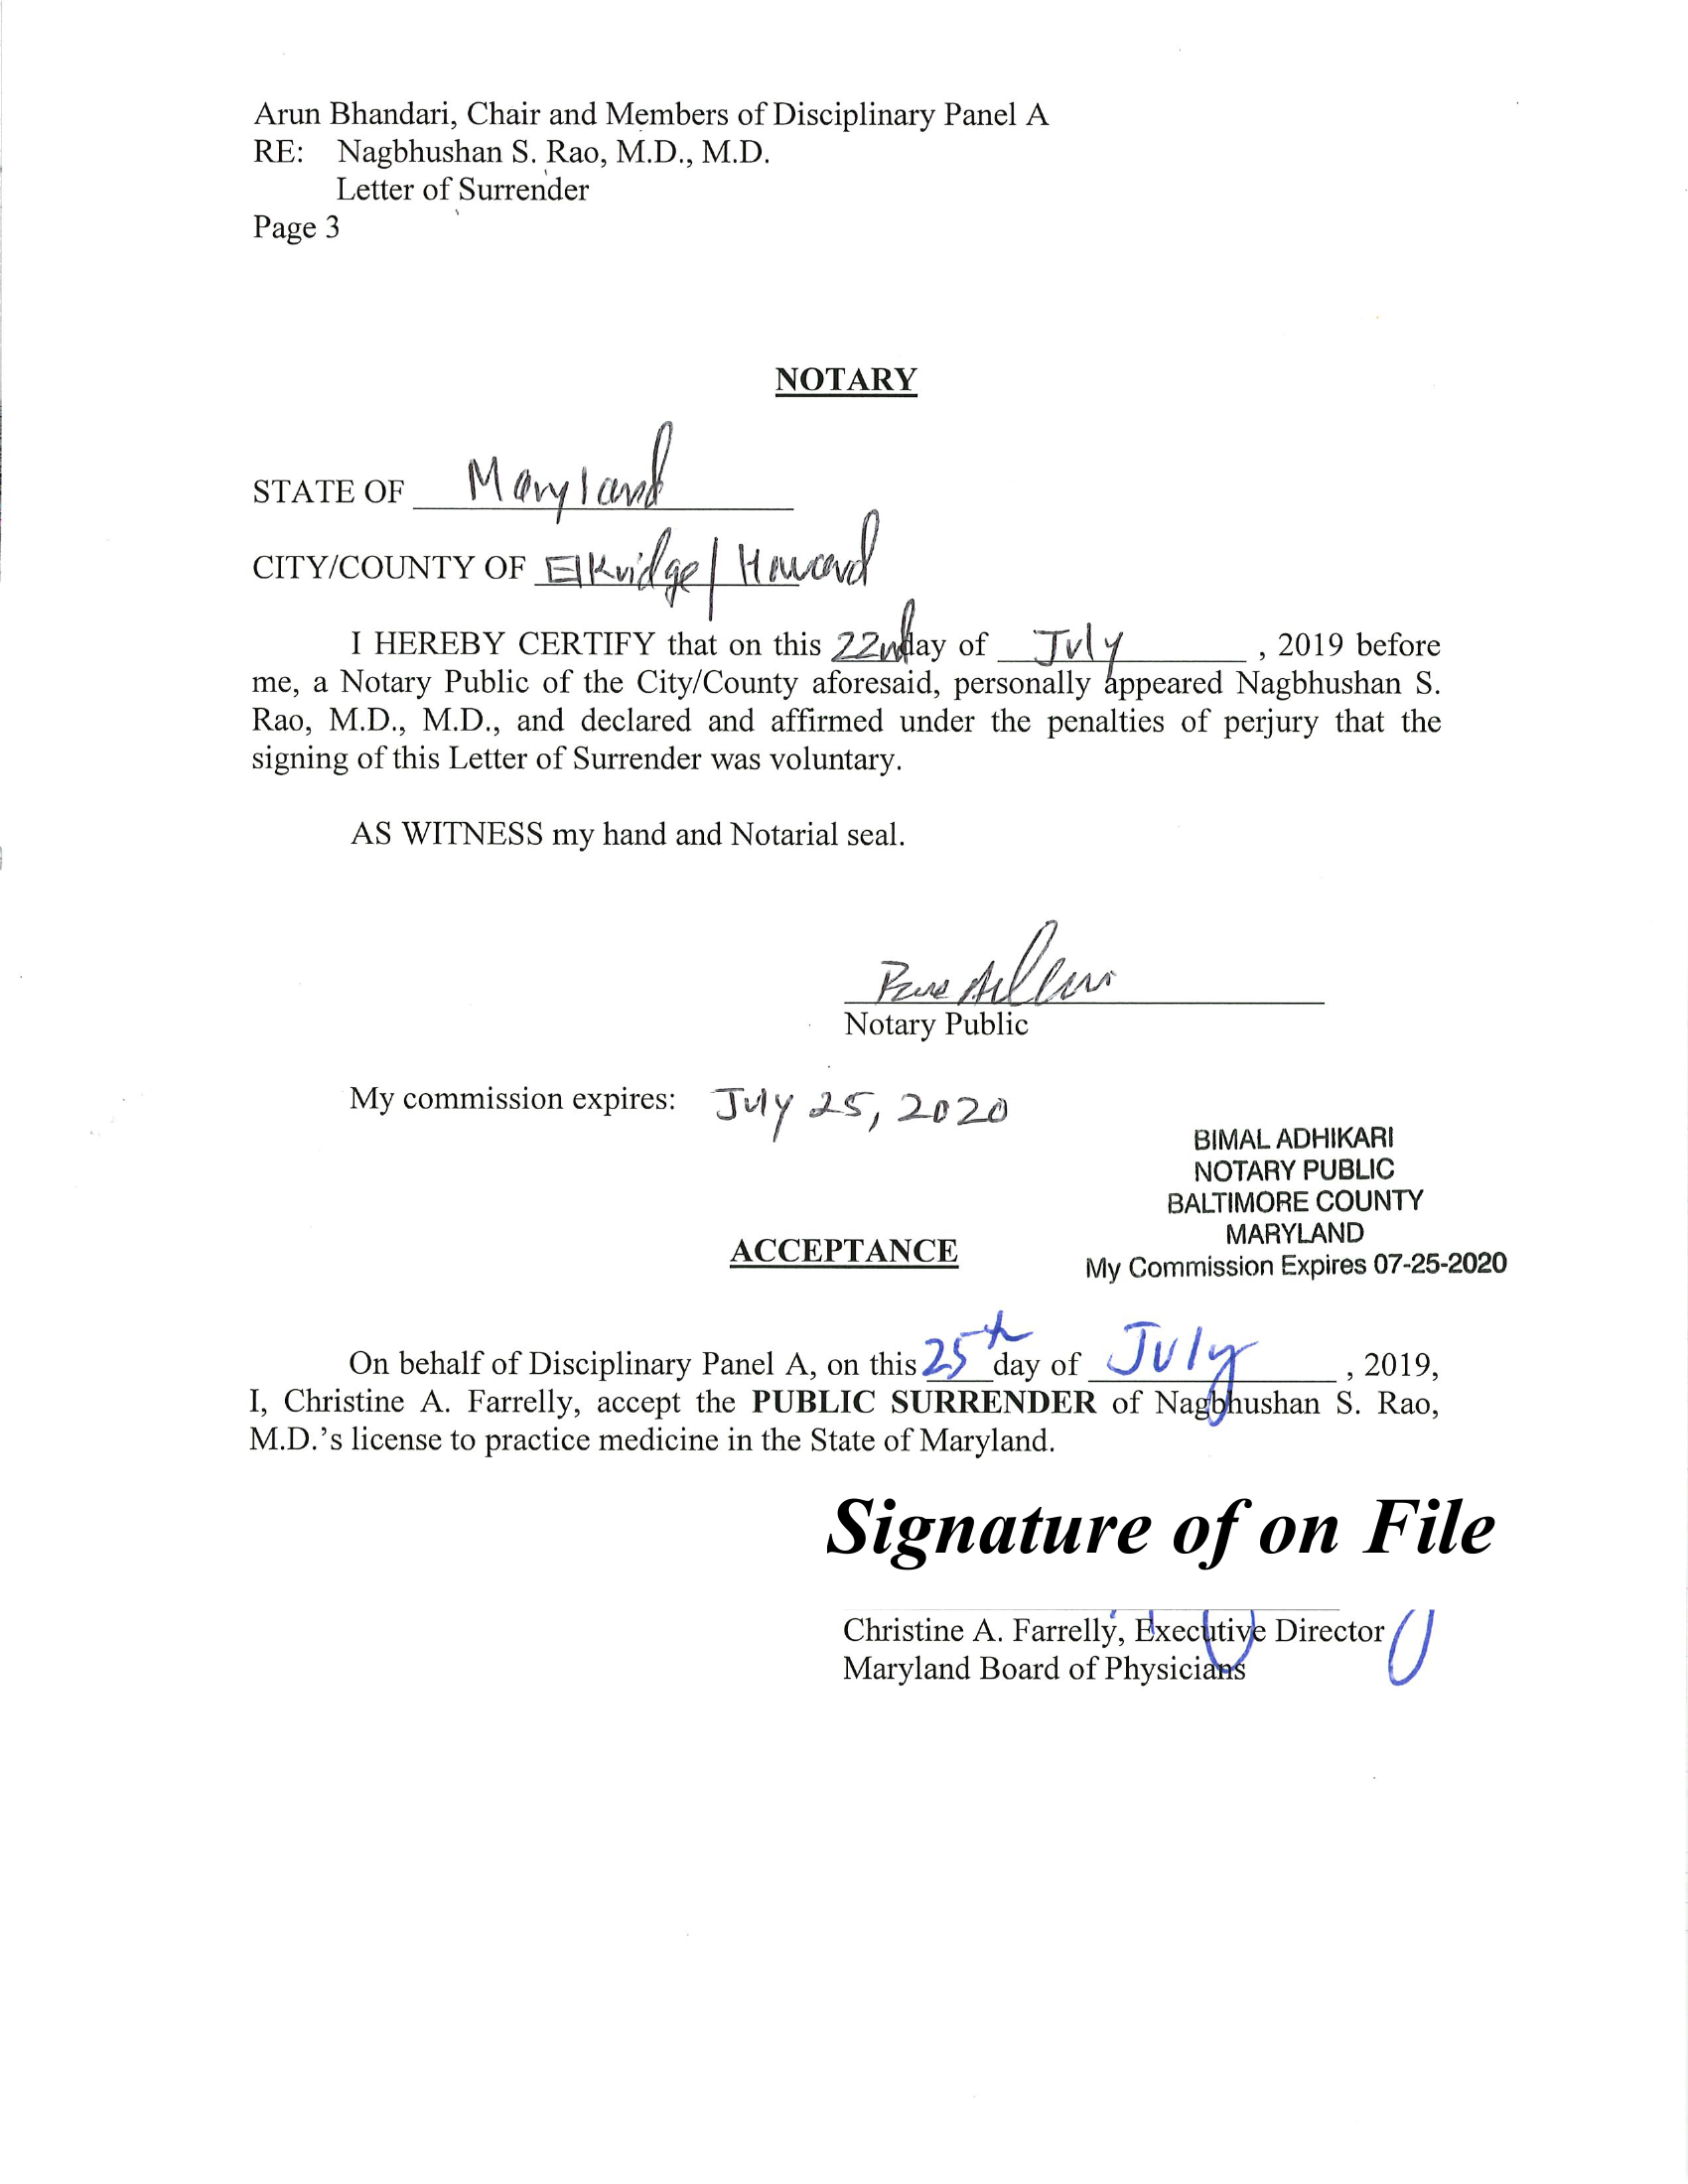 Arun Bhandari, Chair and Members of Disciplinary Panel A
RE: Nagbhushan S. Rao, M.D., M.D.
Letter of Surrender
Page 3
NOTARY
STATE OF Maryland
CITY/COUNTY OF Elkridge/Howard
I HEREBY CERTIFY that on this 22nd day of July, 2019 before
me, a Notary Public of the City/County aforesaid, personally appeared Nagbhushan S.
Rao, M.D., M.D., and declared and affirmed under the penalties of perjury that the
signing of this Letter of Surrender was voluntary.
AS WITNESS my hand and Notarial seal.
Notary Public
My commission expires: July 25, 2020
BIMAL ADHIKARI
NOTARY PUBLIC
BALTIMORE COUNTY
MARYLAND
My Commission Expires 07-25-2020
ACCEPTANCE
On behalf of Disciplinary Panel A, on this 25th day of July, 2019,
I, Christine A. Farrelly, accept the PUBLIC SURRENDER of Nagbhushan S. Rao,
M.D.'s license to practice medicine in the State of Maryland.
Signature of on File
Christine A. Farrelly, Executive Director
Maryland Board of Physicians